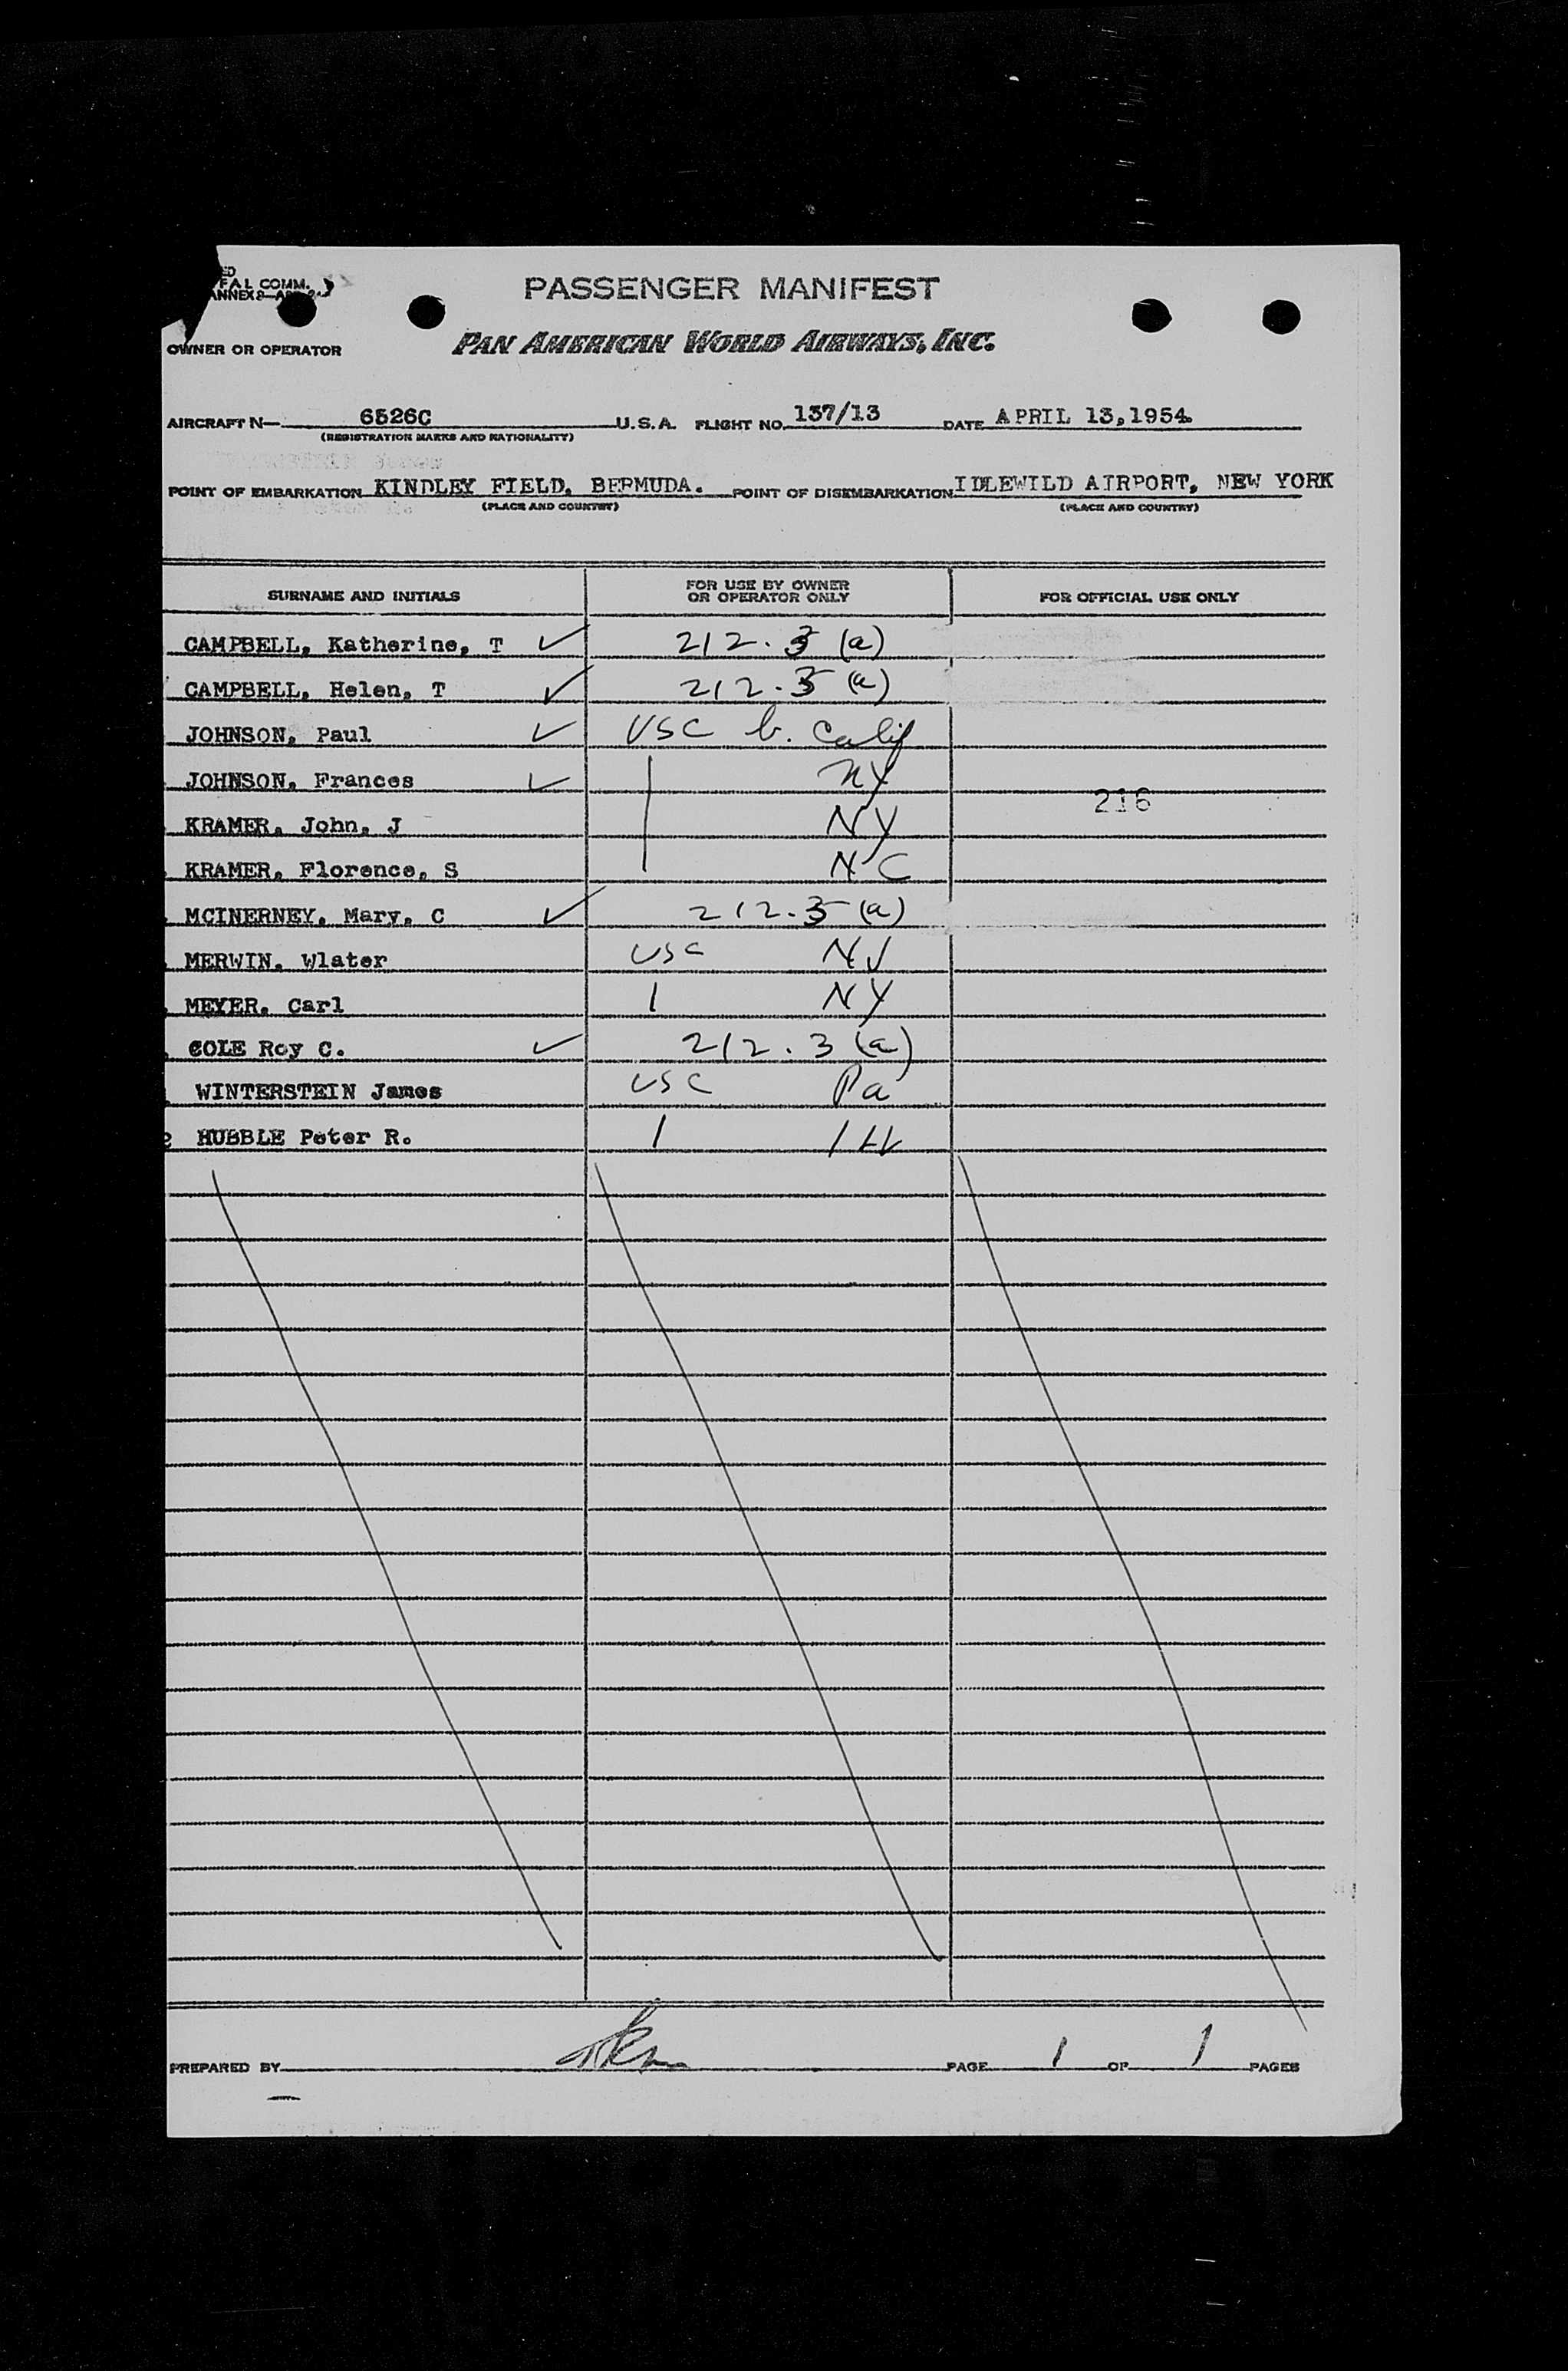 ED
FAL COMM.
ANNEX 9
PASSENGER MANIFEST
OWNER OR OPERATOR PAN AMERICAN WORLD AIRWAYS, INC.
AIRCRAFT N— 6526C U.S.A. FLIGHT NO. 137/13 DATE APRIL 13,1954.
(REGISTRATION MARKS AND NATIONALITY)
POINT OF EMBARKATION KINDLEY FIELD, BERMUDA. POINT OF DISEMBARKATION IDLEWILD AIRPORT, NEW YORK
(PLACE AND COUNTRY) (PLACE AND COUNTRY)
SURNAME AND INITIALS FOR USE BY OWNER OR OPERATOR ONLY FOR OFFICIAL USE ONLY
CAMPBELL, Katherine, T ✓ 212.3 (a)
CAMPBELL, Helen, T ✓ 212.3 (a)
JOHNSON, Paul ✓ USC b. Calif
JOHNSON, Frances ✓ NY
216
KRAMER, John, J NY
KRAMER, Florence, S NC
MCINERNEY, Mary, C ✓ 212.3 (a)
MERWIN, Wlater USC NJ
MEYER, Carl NY
COLE Roy C. ✓ 212.3 (a)
WINTERSTEIN James USC Pa
HUBBLE Peter R.
PREPARED BY PAGE 1 OF 1 PAGES